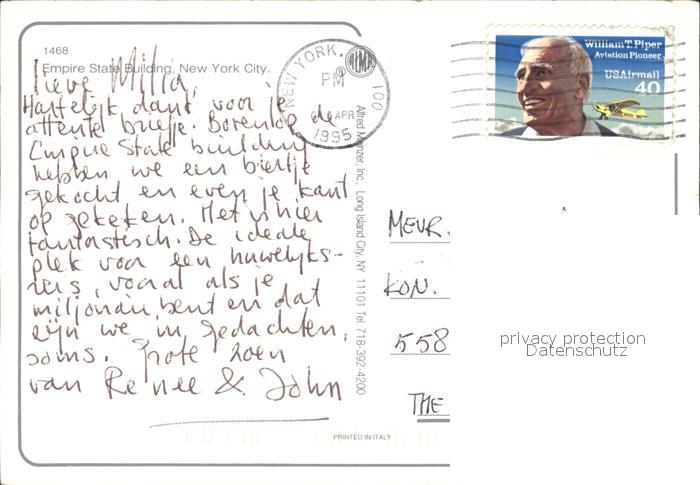 1468
Empire State Building, New York City.
Lieve Millia,
Hartelijk dank voor je
attente briefje. Bovenop de
Empire State building
hebben we een biertje
gekocht en even je kant
op gekeken. Het is hier
fantastisch. De ideale
plek voor een huwelijks-
reis, vooral als je
miljonair bent en dat
zijn we in gedachten,
soms. Grote zoen
van Renee & John
NEW YORK, 100
PM
APR
1995
Alfred Mainzer, Inc., Long Island City, NY 11101 Tel. 718-392-4200
PRINTED IN ITALY
William T. Piper
Aviation Pioneer
USAirmail
40
MEVR.
KON.
558
THE
privacy protection
Datenschutz